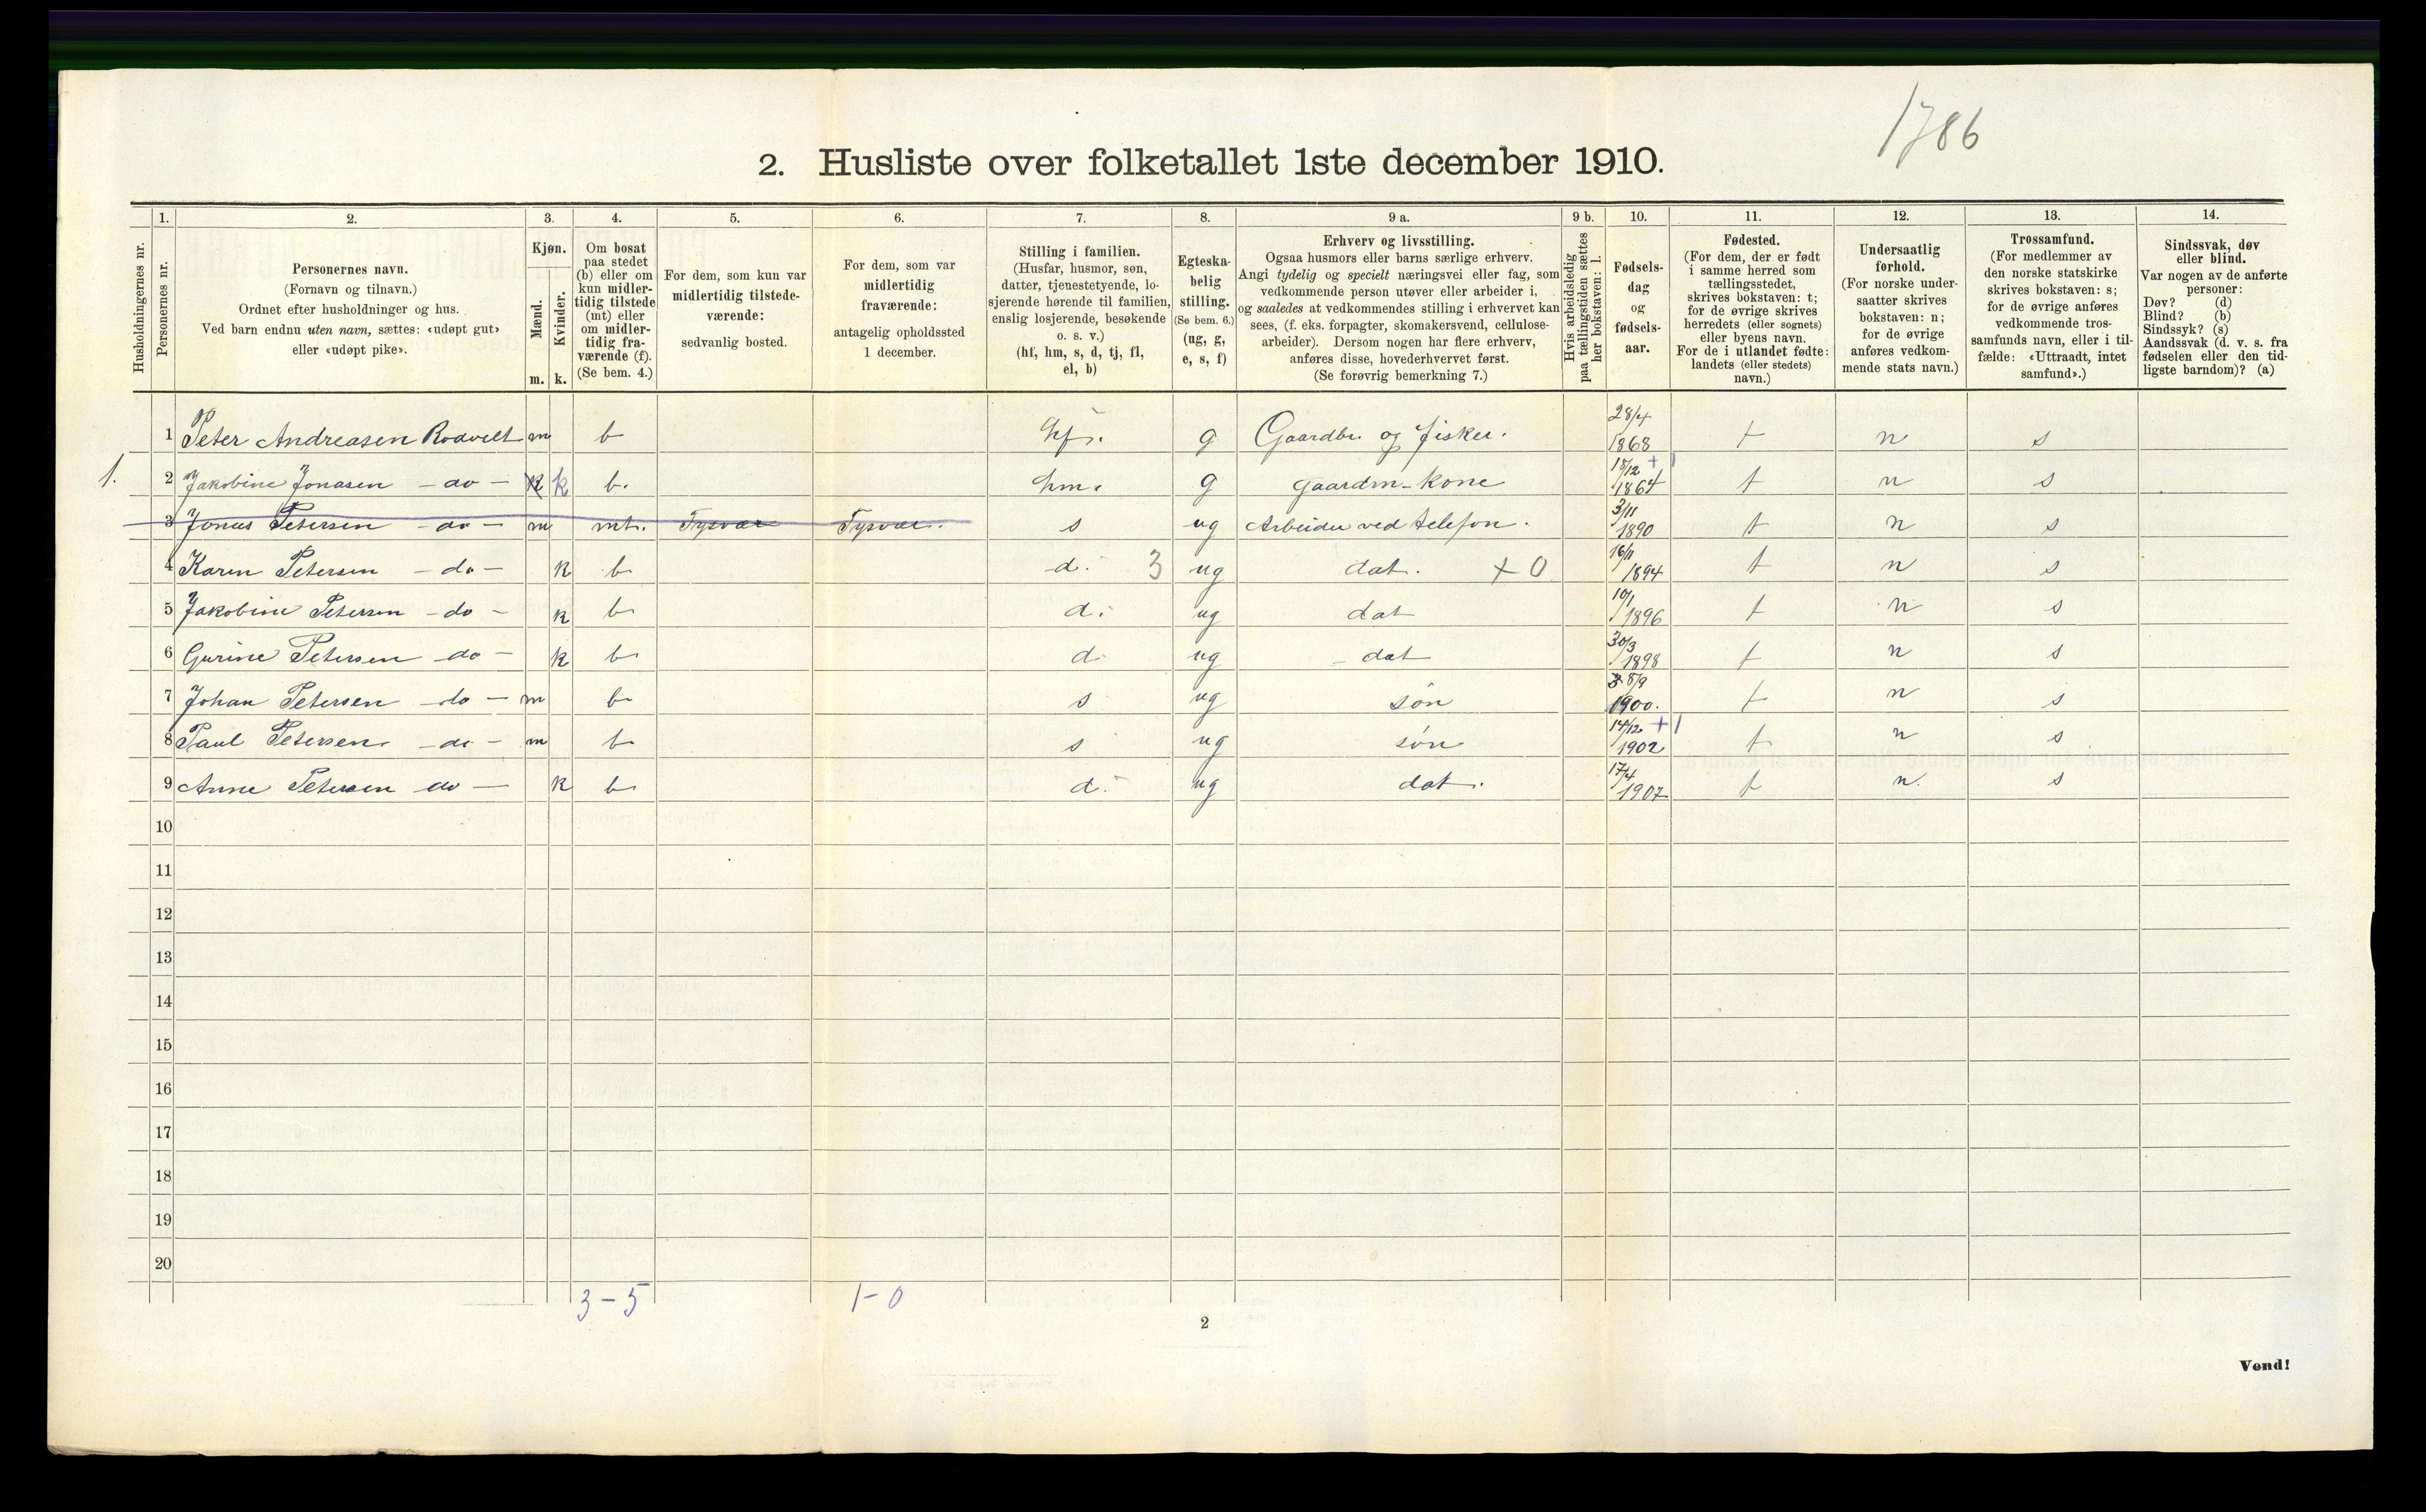 1786
2. Husliste over folketallet 1ste december 1910.
1. 2. 3. 4. 5. 6. 7. 8. 9 a. 9 b. 10. 11. 12. 13. 14.
Husholdningernes nr.
Personernes nr.
Personernes navn.
(Fornavn og tilnavn.)
Ordnet efter husholdninger og hus.
Ved barn endnu uten navn, sættes: «udøpt gut»
eller «udøpt pike».
Kjøn.
Mænd.
Kvinder.
m. k.
Om bosat
paa stedet
(b) eller om
kun midler-
tidig tilstede
(mt) eller
om midler-
tidig fra-
værende (f).
(Se bem. 4.)
For dem, som kun var
midlertidig tilstede-
værende:
sedvanlig bosted.
For dem, som var
midlertidig
fraværende:
antagelig opholdssted
1 december.
Stilling i familien.
(Husfar, husmor, søn,
datter, tjenestetyende, lo-
sjerende hørende til familien,
enslig losjerende, besøkende
o. s. v.)
(hf, hm, s, d, tj, fl,
el, b)
Egteska-
belig
stilling.
(Se bem. 6.)
(ug, g,
e, s, f)
Erhverv og livsstilling.
Ogsaa husmors eller barns særlige erhverv.
Angi tydelig og specielt næringsvei eller fag, som
vedkommende person utøver eller arbeider i,
og saaledes at vedkommendes stilling i erhvervet kan
sees, (f. eks. forpagter, skomakersvend, cellulose-
arbeider). Dersom nogen har flere erhverv,
anføres disse, hovederhvervet først.
(Se forøvrig bemerkning 7.)
Hvis arbeidsledig
paa tællingstiden sættes
her bokstaven: l.
Fødsels-
dag
og
fødsels-
aar.
Fødested.
(For dem, der er født
i samme herred som
tællingsstedet,
skrives bokstaven: t;
for de øvrige skrives
herredets (eller sognets)
eller byens navn.
For de i utlandet fødte:
landets (eller stedets)
navn.)
Undersaatlig
forhold.
(For norske under-
saatter skrives
bokstaven: n;
for de øvrige
anføres vedkom-
mende stats navn.)
Trossamfund.
(For medlemmer av
den norske statskirke
skrives bokstaven: s;
for de øvrige anføres
vedkommende tros-
samfunds navn, eller i til-
fælde: «Uttraadt, intet
samfund».)
Sindssvak, døv
eller blind.
Var nogen av de anførte
personer:
Døv? (d)
Blind? (b)
Sindssyk? (s)
Aandssvak (d. v. s. fra
fødselen eller den tid-
ligste barndom)? (a)
1 Peter Andreasen m b hf. g Gaardbr. og fisker. 28/4 1868 t n s
1. 2 Jakobine Jonasen - do - k k b. hm. g gaardm-kone 18/12 +1 1864 t n s
3 Jonas Petersen - do - m mt. Tysvær Tysvær. s ug Arbeider ved telefon. 3/11 1890 t n s
4 Karen Petersen - do - k b d. 3 ug dat. + 0 16/11 1894 t n s
5 Jakobine Petersen - do - k b d. ug dat 10/1 1896 t n s
6 Gurine Petersen do - k b d ug dat 30/3 1898 t n s
7 Johan Petersen - do - m b s ug søn 8/9 1900. t n s
8 Paul Petersen - do - m b s ug søn 14/12 +1 1902 t n s
9 Anne Petersen do - k b d. ug dat. 17/4 1907 t n. s
10
11
12
13
14
15
16
17
18
19
20
3 - 5 1 - 0
2
Vend!